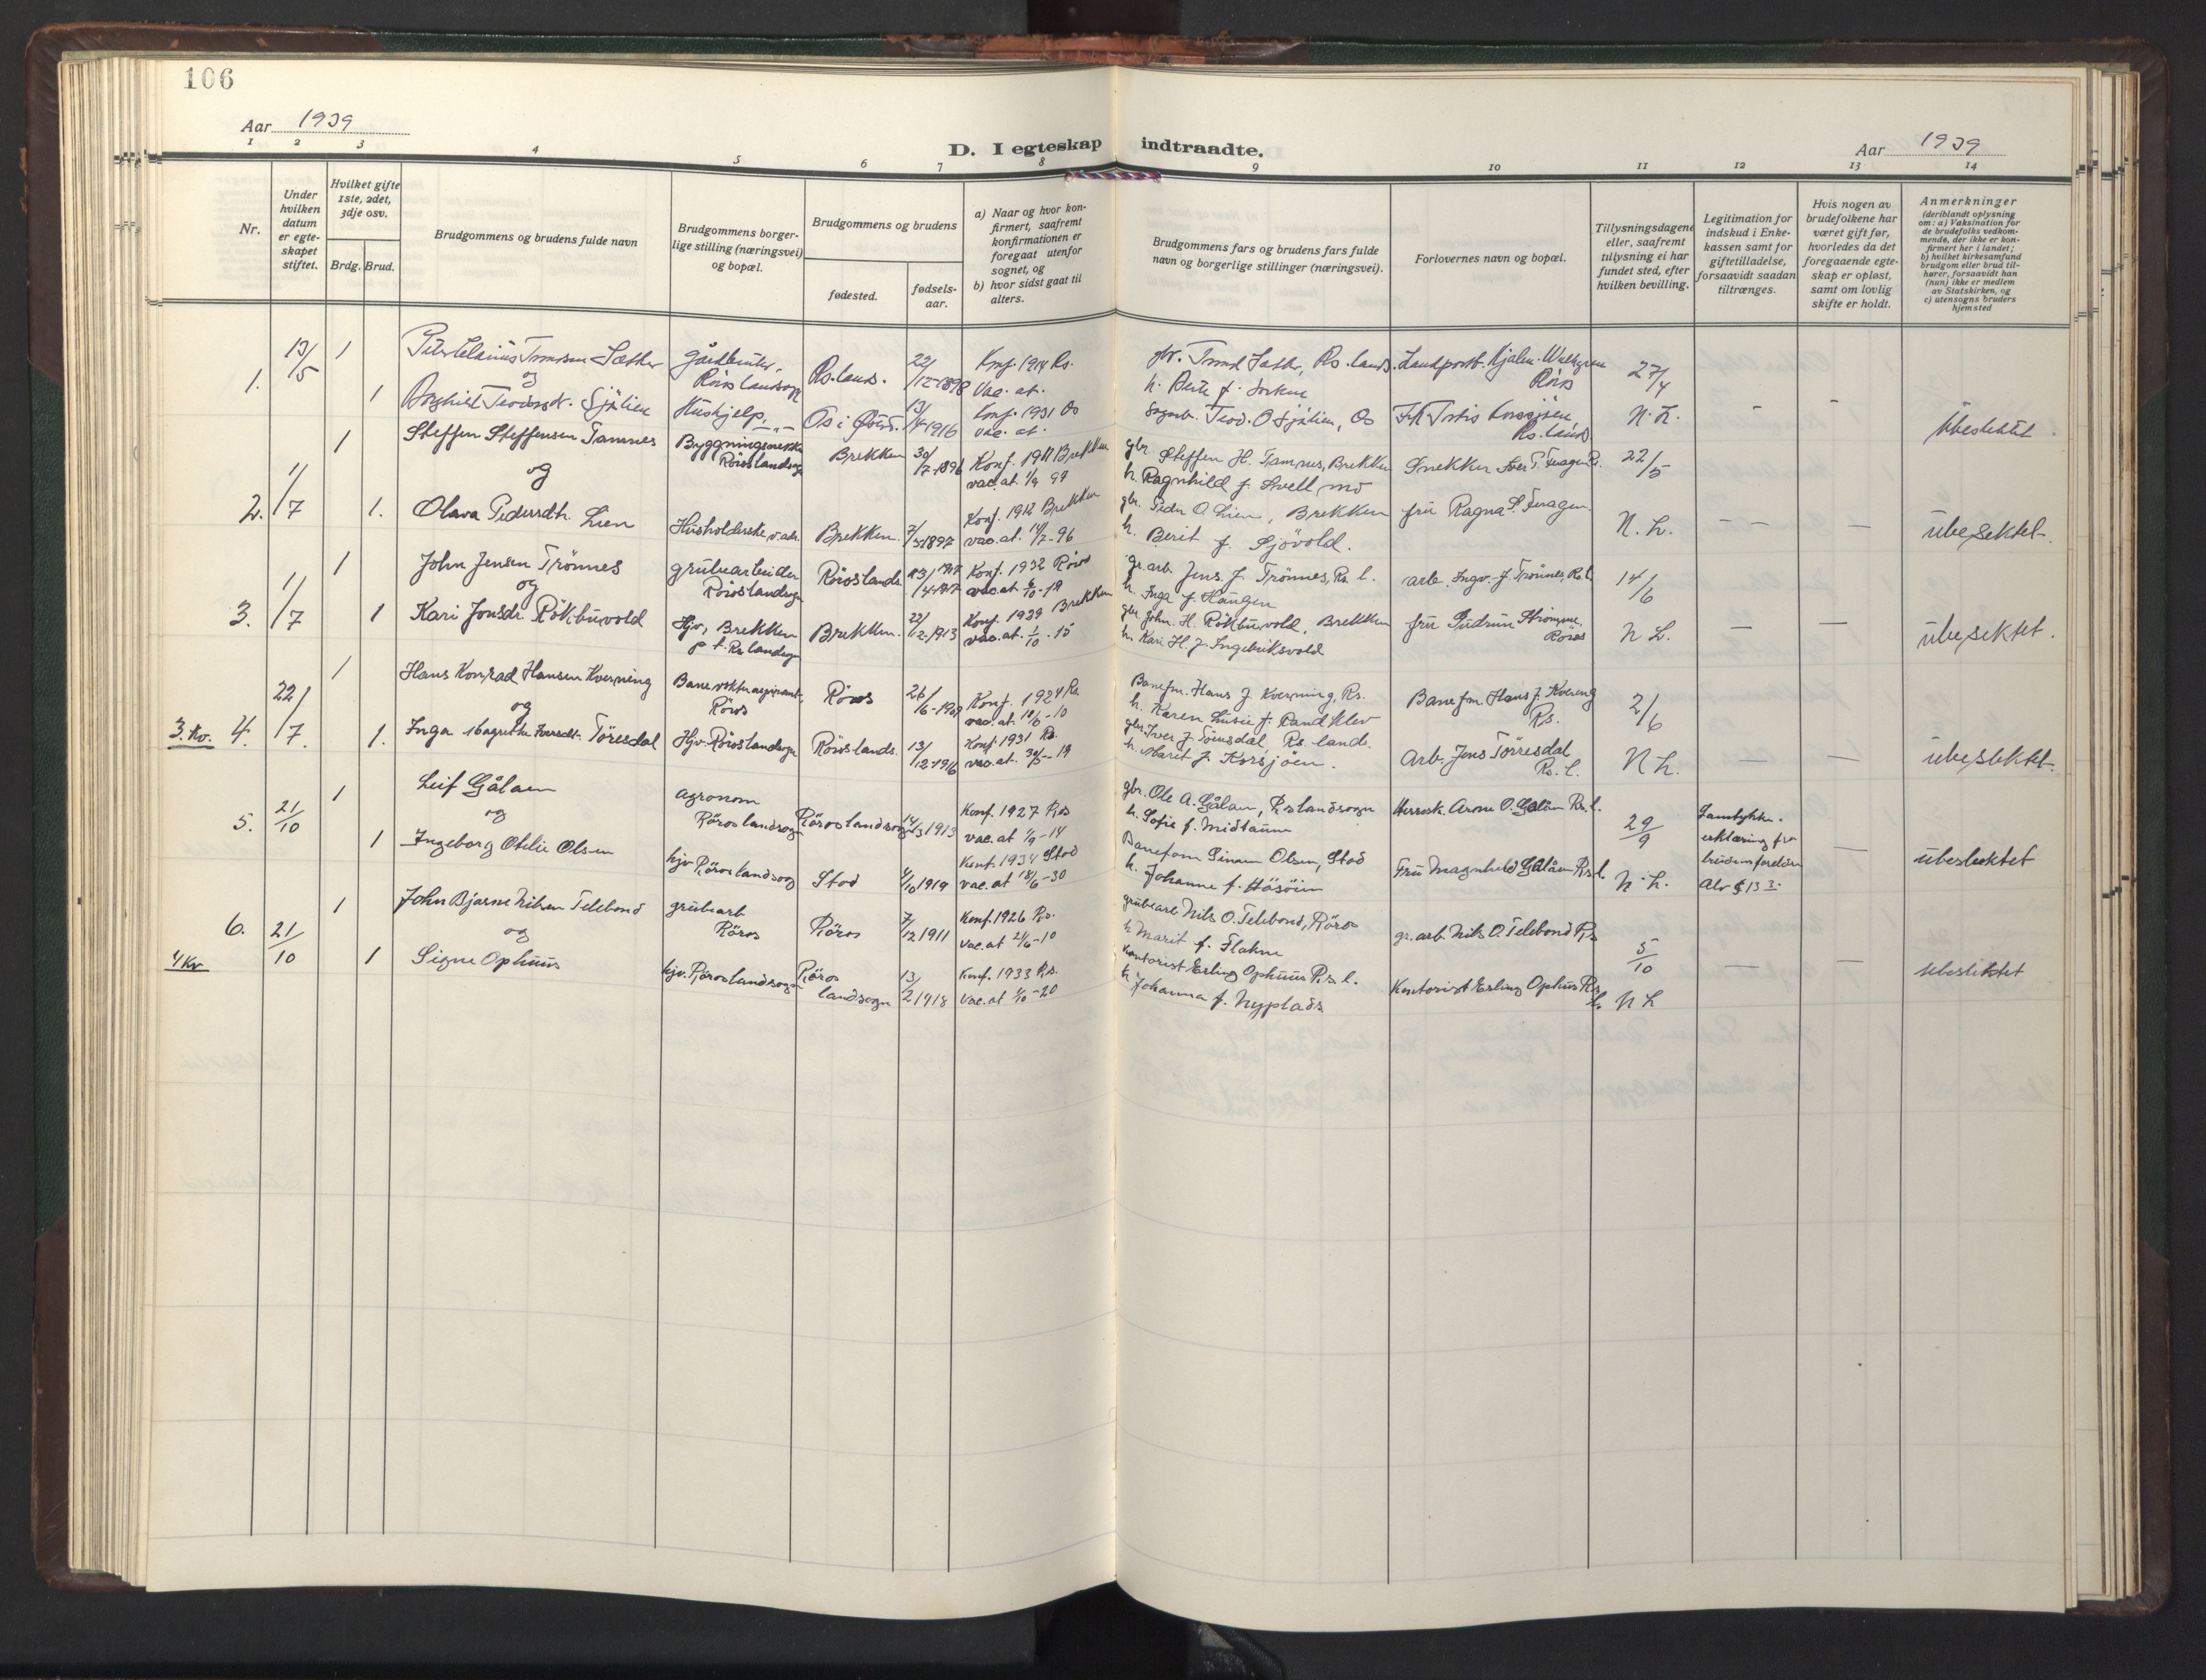 106
Aar 1939
D. I egteskap indtraadte.
Aar 1939
1 2 3 4 5 6 7 8 9 10 11 12 13 14
Nr.
Under hvilken datum er egteskapet stiftet.
Hvilket gifte 1ste, 2det, 3dje osv.
Brdg. Brud.
Brudgommens og brudens fulde navn
Brudgommens borgerlige stilling (næringsvei) og bopæl.
Brudgommens og brudens
fødested.
fødselsaar.
a) Naar og hvor konfirmert, saafremt konfirmationen er foregaat utenfor sognet, og
b) hvor sidst gaat til alters.
Brudgommens fars og brudens fars fulde navn og borgerlige stillinger (næringsvei).
Forlovernes navn og bopæl.
Tillysningsdagene eller, saafremt tillysning ei har fundet sted, efter hvilken bevilling.
Legitimation for indskud i Enkekassen samt for giftetilladelse, forsaavidt saadan tiltrænges.
Hvis nogen av brudefolkene har været gift før, hvorledes da det foregaaende egteskap er opløst, samt om lovlig skifte er holdt.
Anmerkninger
(deriblandt oplysning om: a) Vaksination for de brudefolks vedkommende, der ikke er konfirmert her i landet; b) hvilket kirkesamfund brudgom eller brud tilhører, forsaavidt han (hun) ikke er medlem av Statskirken, og c) utensogns bruders hjemsted
1. 13/5 1 Sæther Rs. lands. 22/12-1898 Konf. 1914 Rs. 27/4
og Røros landsogn Vac. at. Røros
1 Sjölien Hushjelp Os i Østerd. 13/4-1916 Konf. 1931 Os Os N. L.
vac. at. Rs. lands
1 Steffen Steffensen Tamnes Røros landsogn Brekken 30/7-1896 Konf. 1911 Brekken gbr. Steffen H. Tamnes, Brekken Snekker Iver P. Feragen Rs. 22/5
og vac. at. 1/9 99 h. Ragnhild f.
2. 1/7 1. Olava Pedersdtr. Lien Husholderske Brekken 7/3-1897 Konf. 1912 Brekken gbr. Peder O. Lien, Brekken fru Ragna S. Feragen N. L. - - — ubeslektet
vac. at. 14/7-96 h. Berit f. Sjövold.
1 John Jensen Trönnes grubearbeider Røros landsogn Røros lands. Konf. 1932 Røros gr. arb. Jens J. Trönnes, Rs. l. arb. Ingv. J. Trönnes, Rs. l. 14/6
og h. Inga f. Haugen
3. 1/7 1 Kari Jonsdr. Rökbuvold Hjv, Brekken p. t. Rs landsogn Brekken. 22/12-1913 Brekken gbr. John H. Rökbuvold, Brekken fru Gudrun Strömme, Røros N L. — — ubeslektet.
vac. at. 1/10-15 h. Kari H. f. Ingebriksvold
1 Hans Konrad Hansen Kverning Banevokteraspirant, Röros Röros Konf. 1924 Rs. Banefm. Hans J. Kverning, Rs. Banefm Hans J. Kverneng Rs. 2/6
og vac. at. 18/6-10 h. Karen Lusie f. Randklev
3. Kv. 4. 22/7. 1. Inga Magrethe Iversdt. Töresdal Hjv. Röros landsogn Röros lands. 13/12-1916 Konf 1931 Rs. gbr. Iver J. Töresdal, Rs. land. Arb. Jens Törresdal Rs. l. N L. — — ubeslektet.
vac. at. h. Marit f. Korsjöen.
1 Leif Gålaen agronom Röros landsogn Röros landsogn 14/3 1913 Konf. 1927 Rs gbr. Ole A. Gålaen, Rs landsogn Herredsk. Arne O. Galåen Rs. l. 29/9 Samtykke-
5. 21/10 og vac. at 1/9-14 h. Sofie f. Midtaune erklæring fra
1 Ingeborg Otelie Olsen hjv Röros landsogn Stod 4/10 1919 Konf. 1934 Stod Banefom Olsen, Stod Fru Magnhild Galåen Rs. l. N. L. brudens foreldre — ubeslektet
vac. at 18/6-30 h. Johanne f. Alv § 13 3.
1 John Bjarne Nilsen Telebond grubearb Röros Röros 7/12 1911 Konf. 1926 Rs. grubearb Nils O. Telebond, Röros gr. arb. Nils O. Telebond Rs
6. 21/10 og vac. at 21/6-10 h Marit f. Flakne 5/10
4 Kv 1 Signe Ophuus hjv. Röros landsogn Röros landsogn 13/2 1918 Konf. 1933 Rs. kontorist Erling Ophuus Rs. l. Kontorist Erling Ophus Rs. l. N L — — ubeslektet
vac. at 1/10-20 h. Johanna f. Nyplads